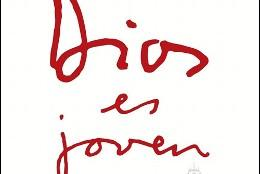 Dios
es
joven